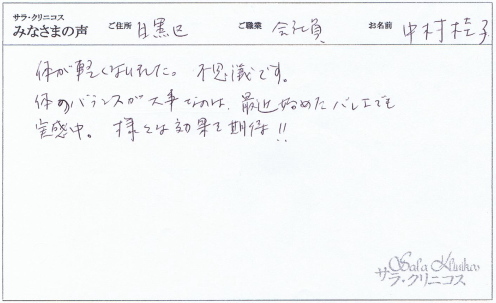 サラ・クリニコス
みなさまの声 ご住所 目黒区 ご職業 会社員 お名前 中村桂子
体が軽くなりました。不思議です。
体のバランスが大事なのは、最近始めたバレエでも
実感中。様々な効果を期待!!
Sala Klinikos
サラ・クリニコス